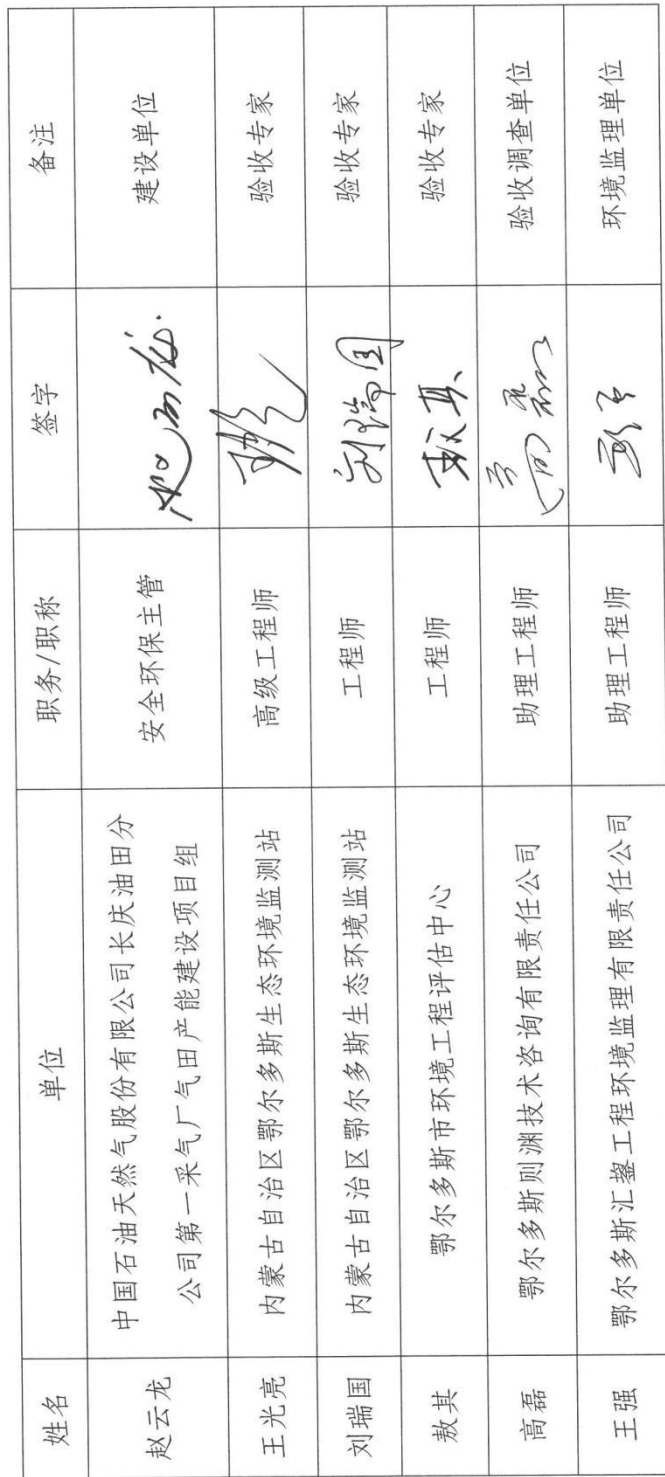 姓名 单位 职务/职称 签字 备注
赵云龙 中国石油天然气股份有限公司长庆油田分 安全环保主管 建设单位
公司第一采气厂气田产能建设项目组
王光亮 内蒙古自治区鄂尔多斯生态环境监测站 高级工程师 验收专家
刘瑞国 内蒙古自治区鄂尔多斯生态环境监测站 工程师 刘瑞国 验收专家
敖其 鄂尔多斯市环境工程评估中心 工程师 敖其 验收专家
高磊 鄂尔多斯则渊技术咨询有限责任公司 助理工程师 高磊 验收调查单位
王强 鄂尔多斯汇鋆工程环境监理有限责任公司 助理工程师 环境监理单位